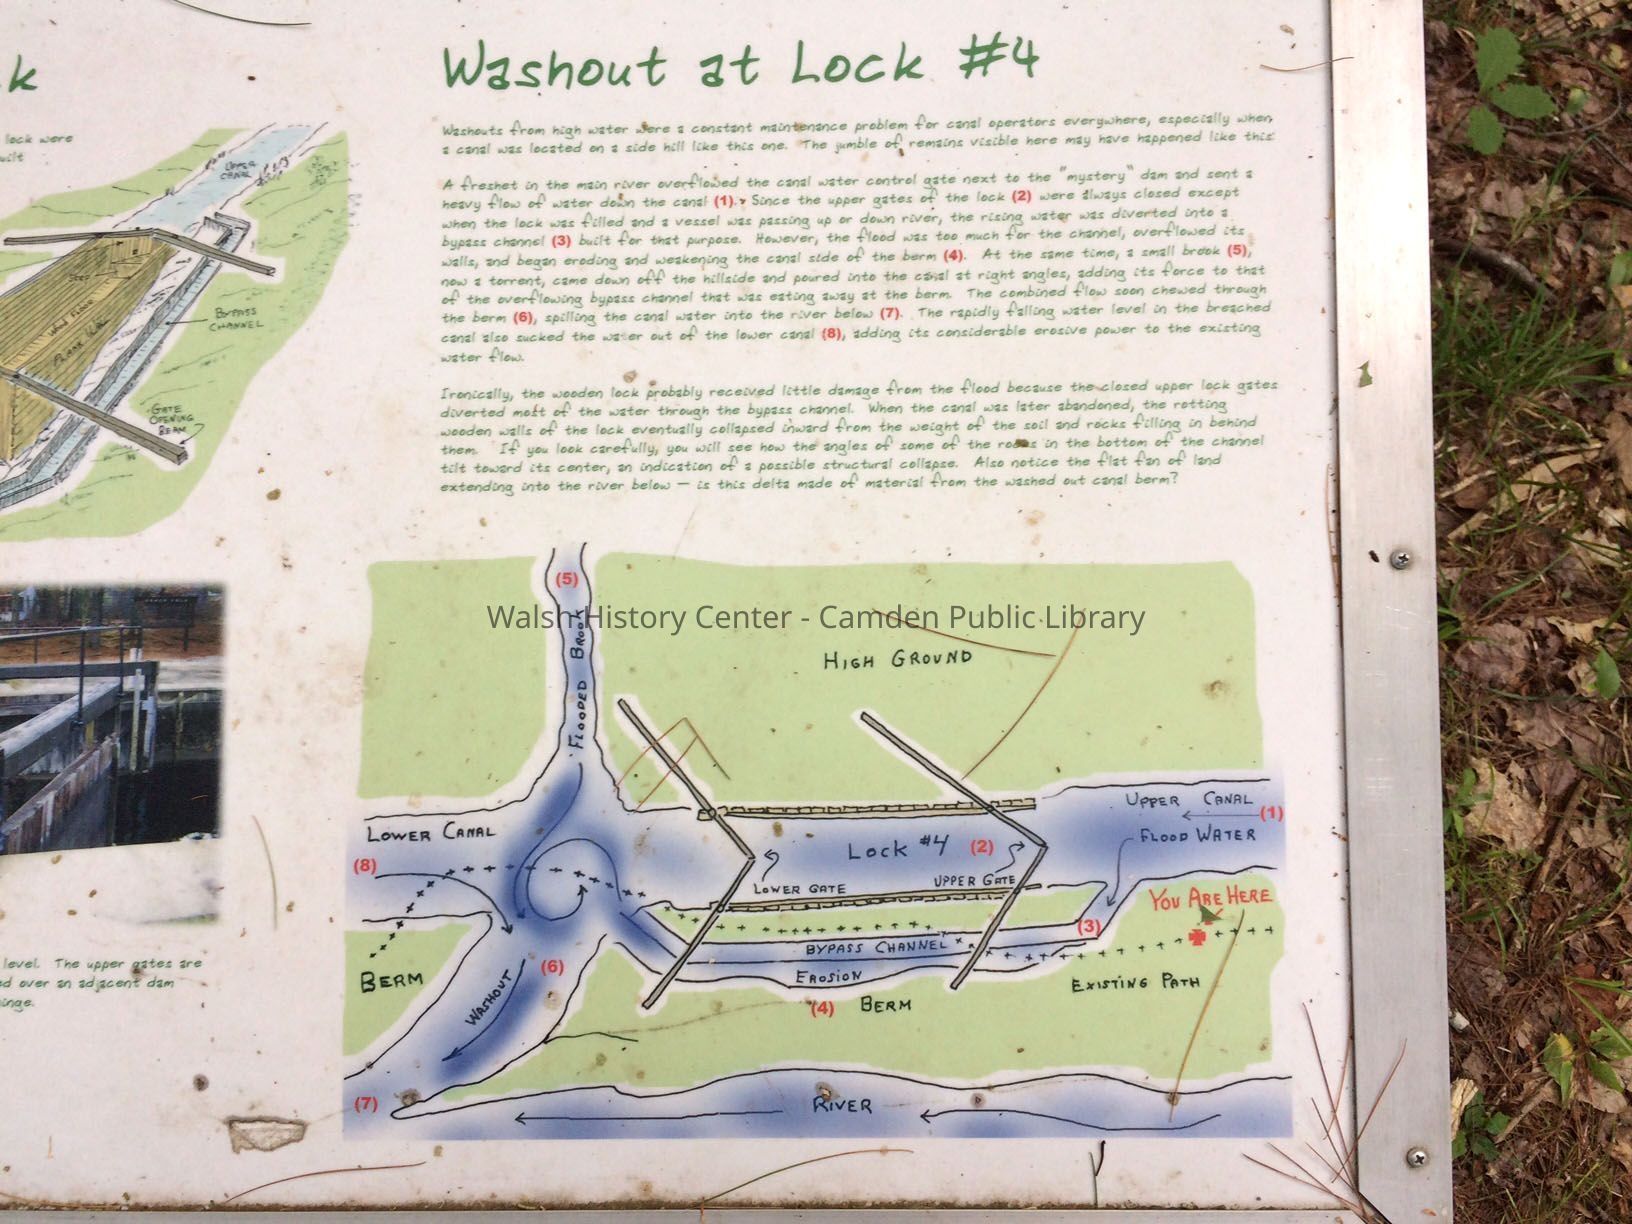 k
lock were
uilt
UPPER
CANAL
WOOD FLOOR
PLANK WALL
BYPASS
CHANNEL
GATE
OPENING
BEAM
level. The upper gates are
ed over an adjacent dam
inge.
Washout at Lock #4
Washouts from high water were a constant maintenance problem for canal operators everywhere, especially when
a canal was located on a side hill like this one. The jumble of remains visible here may have happened like this:
A freshet in the main river overflowed the canal water control gate next to the "mystery" dam and sent a
heavy flow of water down the canal (1). Since the upper gates of the lock (2) were always closed except
when the lock was filled and a vessel was passing up or down river, the rising water was diverted into a
bypass channel (3) built for that purpose. However, the flood was too much for the channel, overflowed its
walls, and began eroding and weakening the canal side of the berm (4). At the same time, a small brook (5),
now a torrent, came down off the hillside and poured into the canal at right angles, adding its force to that
of the overflowing bypass channel that was eating away at the berm. The combined flow soon chewed through
the berm (6), spilling the canal water into the river below (7). The rapidly falling water level in the breached
canal also sucked the water out of the lower canal (8), adding its considerable erosive power to the existing
water flow.
Ironically, the wooden lock probably received little damage from the flood because the closed upper lock gates
diverted most of the water through the bypass channel. When the canal was later abandoned, the rotting
wooden walls of the lock eventually collapsed inward from the weight of the soil and rocks filling in behind
them. If you look carefully, you will see how the angles of some of the rocks in the bottom of the channel
tilt toward its center, an indication of a possible structural collapse. Also notice the flat fan of land
extending into the river below — is this delta made of material from the washed out canal berm?
(5)
Walsh History Center - Camden Public Library
FLOODED BROOK
HIGH GROUND
UPPER CANAL
(1)
FLOOD WATER
LOWER CANAL
(8)
LOCK #4 (2)
LOWER GATE
UPPER GATE
YOU ARE HERE
(3)
BYPASS CHANNEL
EROSION
EXISTING PATH
(4) BERM
BERM
(6)
WASHOUT
(7)
RIVER